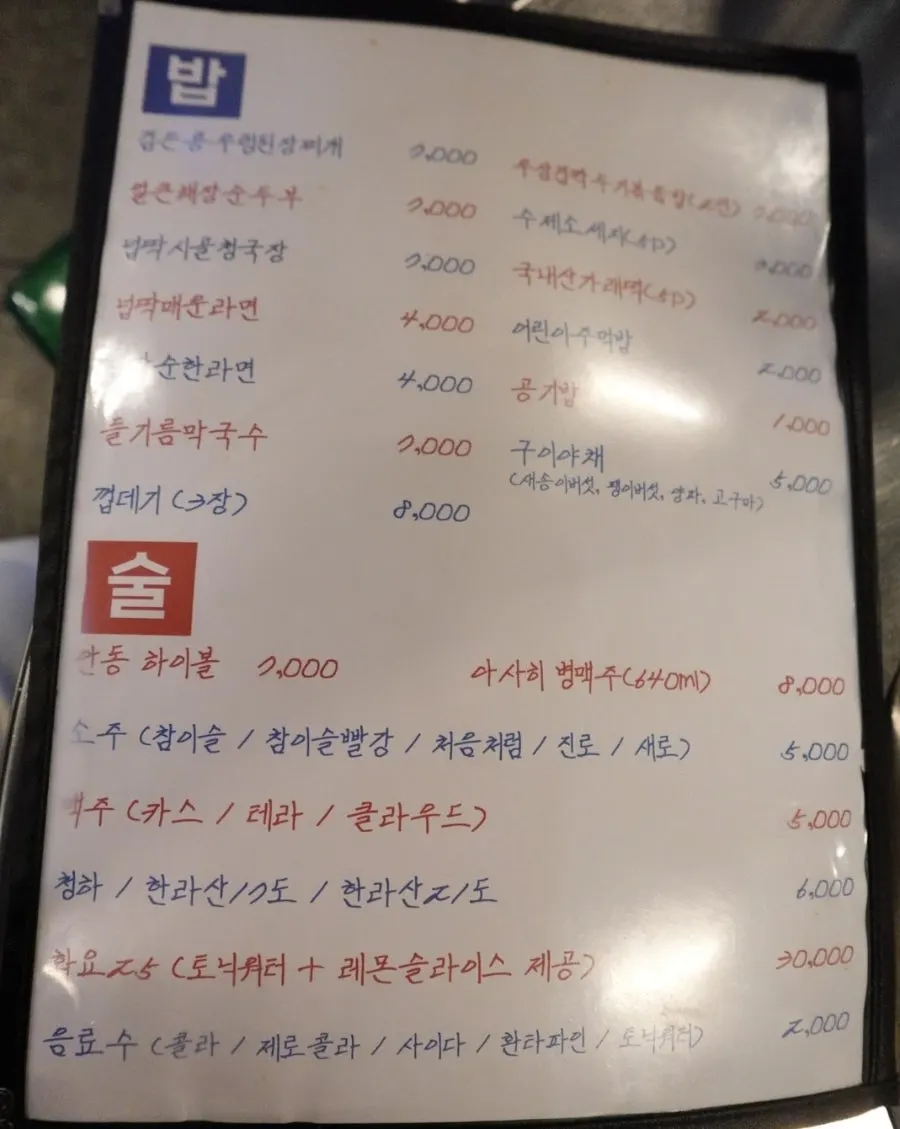 밥
검은콩 우렁된장찌개 7,000
얼큰해장순두부 7,000
넙딱시골청국장 7,000
넙딱매운라면 4,000
순한라면 4,000
들기름막국수 7,000
껍데기 (3장) 8,000
수제소세지(4p)
국내산가래떡(4p) 2,000
어린이주먹밥 2,000
공기밥 1,000
구이야채 5,000
(새송이버섯, 팽이버섯, 양파, 고구마)
술
안동 하이볼 7,000
아사히 병맥주(640ml) 8,000
소주 (참이슬 / 참이슬빨강 / 처음처럼 / 진로 / 새로) 5,000
맥주 (카스 / 테라 / 클라우드) 5,000
청하 / 한라산17도 / 한라산21도 6,000
화요25 (토닉워터 + 레몬슬라이스 제공) 30,000
음료수 (콜라 / 제로콜라 / 사이다 / 환타파인 / 토닉워터) 2,000